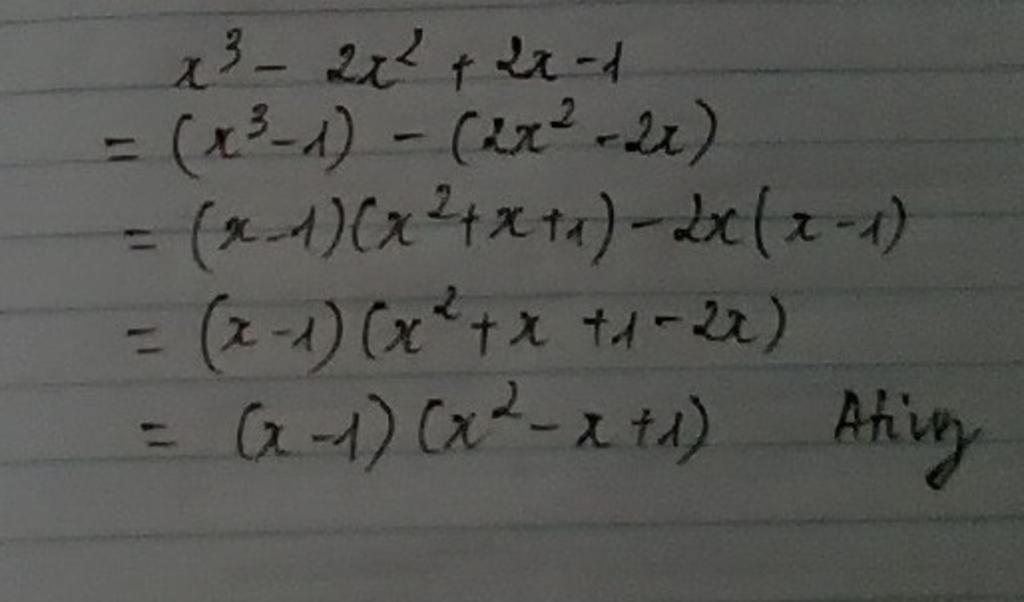 x³ - 2x² + 2x - 1
= (x³-1) - (2x² - 2x)
= (x-1)(x²+x+1) - 2x(x-1)
= (x-1)(x²+x+1-2x)
= (x-1)(x²-x+1)